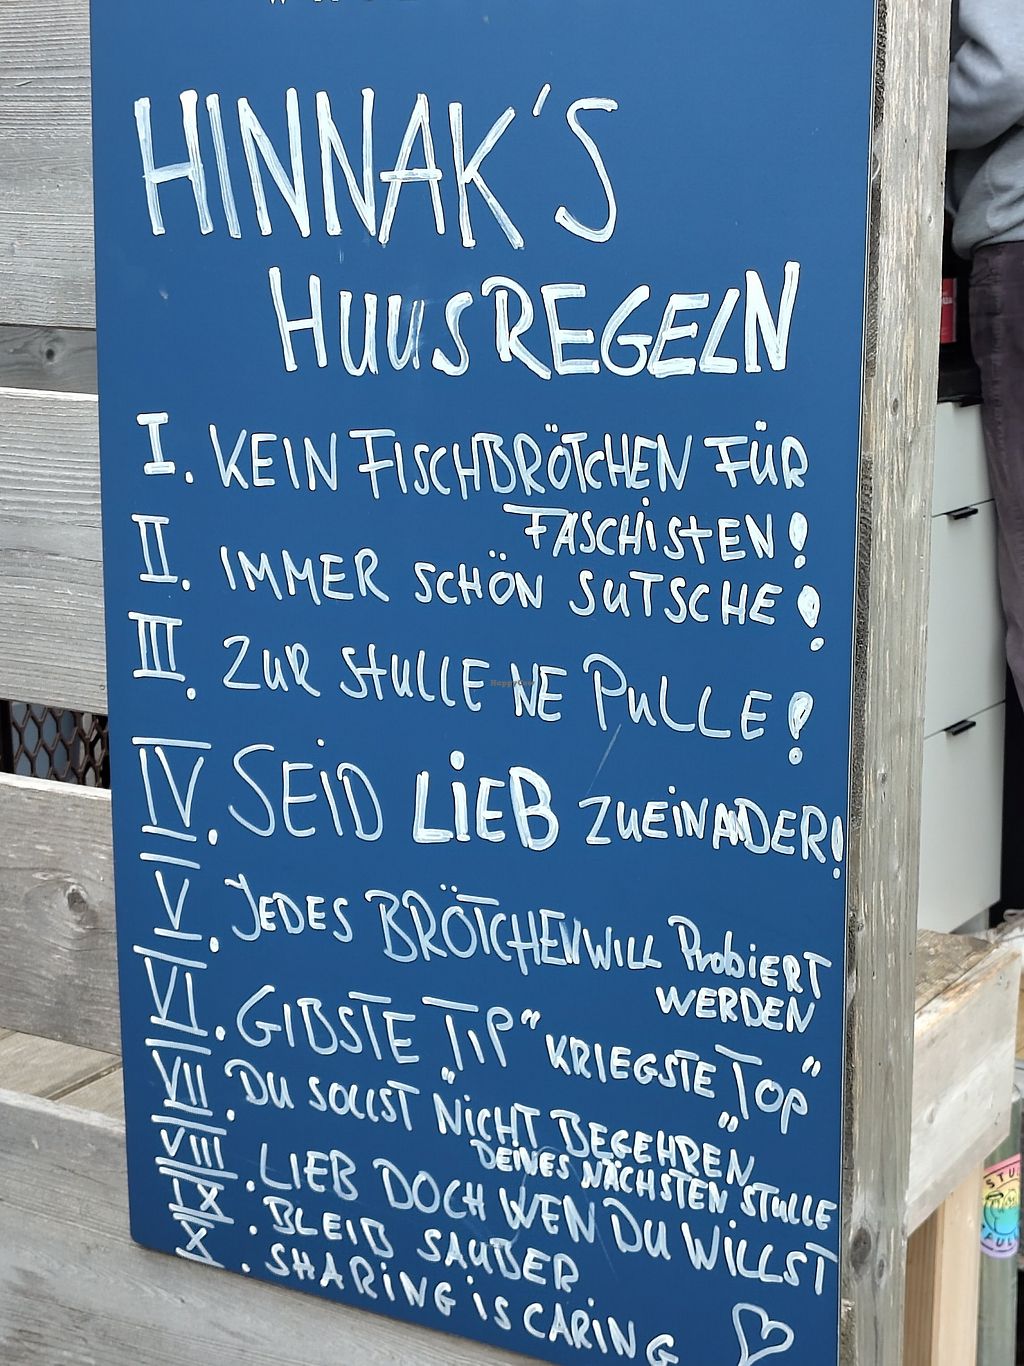 HINNAK'S
HUUSREGELN
I. KEIN FISCHBRÖTCHEN FÜR
FASCHISTEN!
II. IMMER SCHÖN SUTSCHE!
III. ZUR STULLE NE PULLE!
IV. SEID LIEB ZUEINANDER!
V. JEDES BRÖTCHEN WILL PROBIERT
WERDEN
VI. GIBSTE TIP" KRIEGSTE TOP"
VII. DU SOLLST "NICHT BEGEHREN"
DEINES NÄCHSTEN STULLE
VIII. LIEB DOCH WEN DU WILLST
IX. BLEIB SAUBER
X. SHARING IS CARING
HappyCow